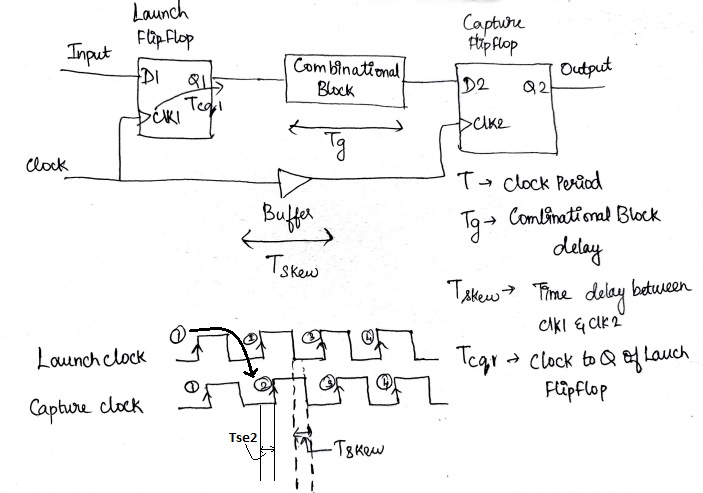 Launch
FlipFlop
Capture
FlipFlop
Input
D1
Q1
Tcq1
Clk1
Combinational
Block
Tg
D2
Q2
Clk2
Output
Clock
Buffer
Tskew
T → Clock Period
Tg → Combinational Block
delay
Tskew → Time delay between
Clk1 & Clk2
Tcq,r → Clock to Q of Lauch
FlipFlop
1 2 3 4
Launch clock
1 2 3 4
Capture clock
Tse2
Tskew